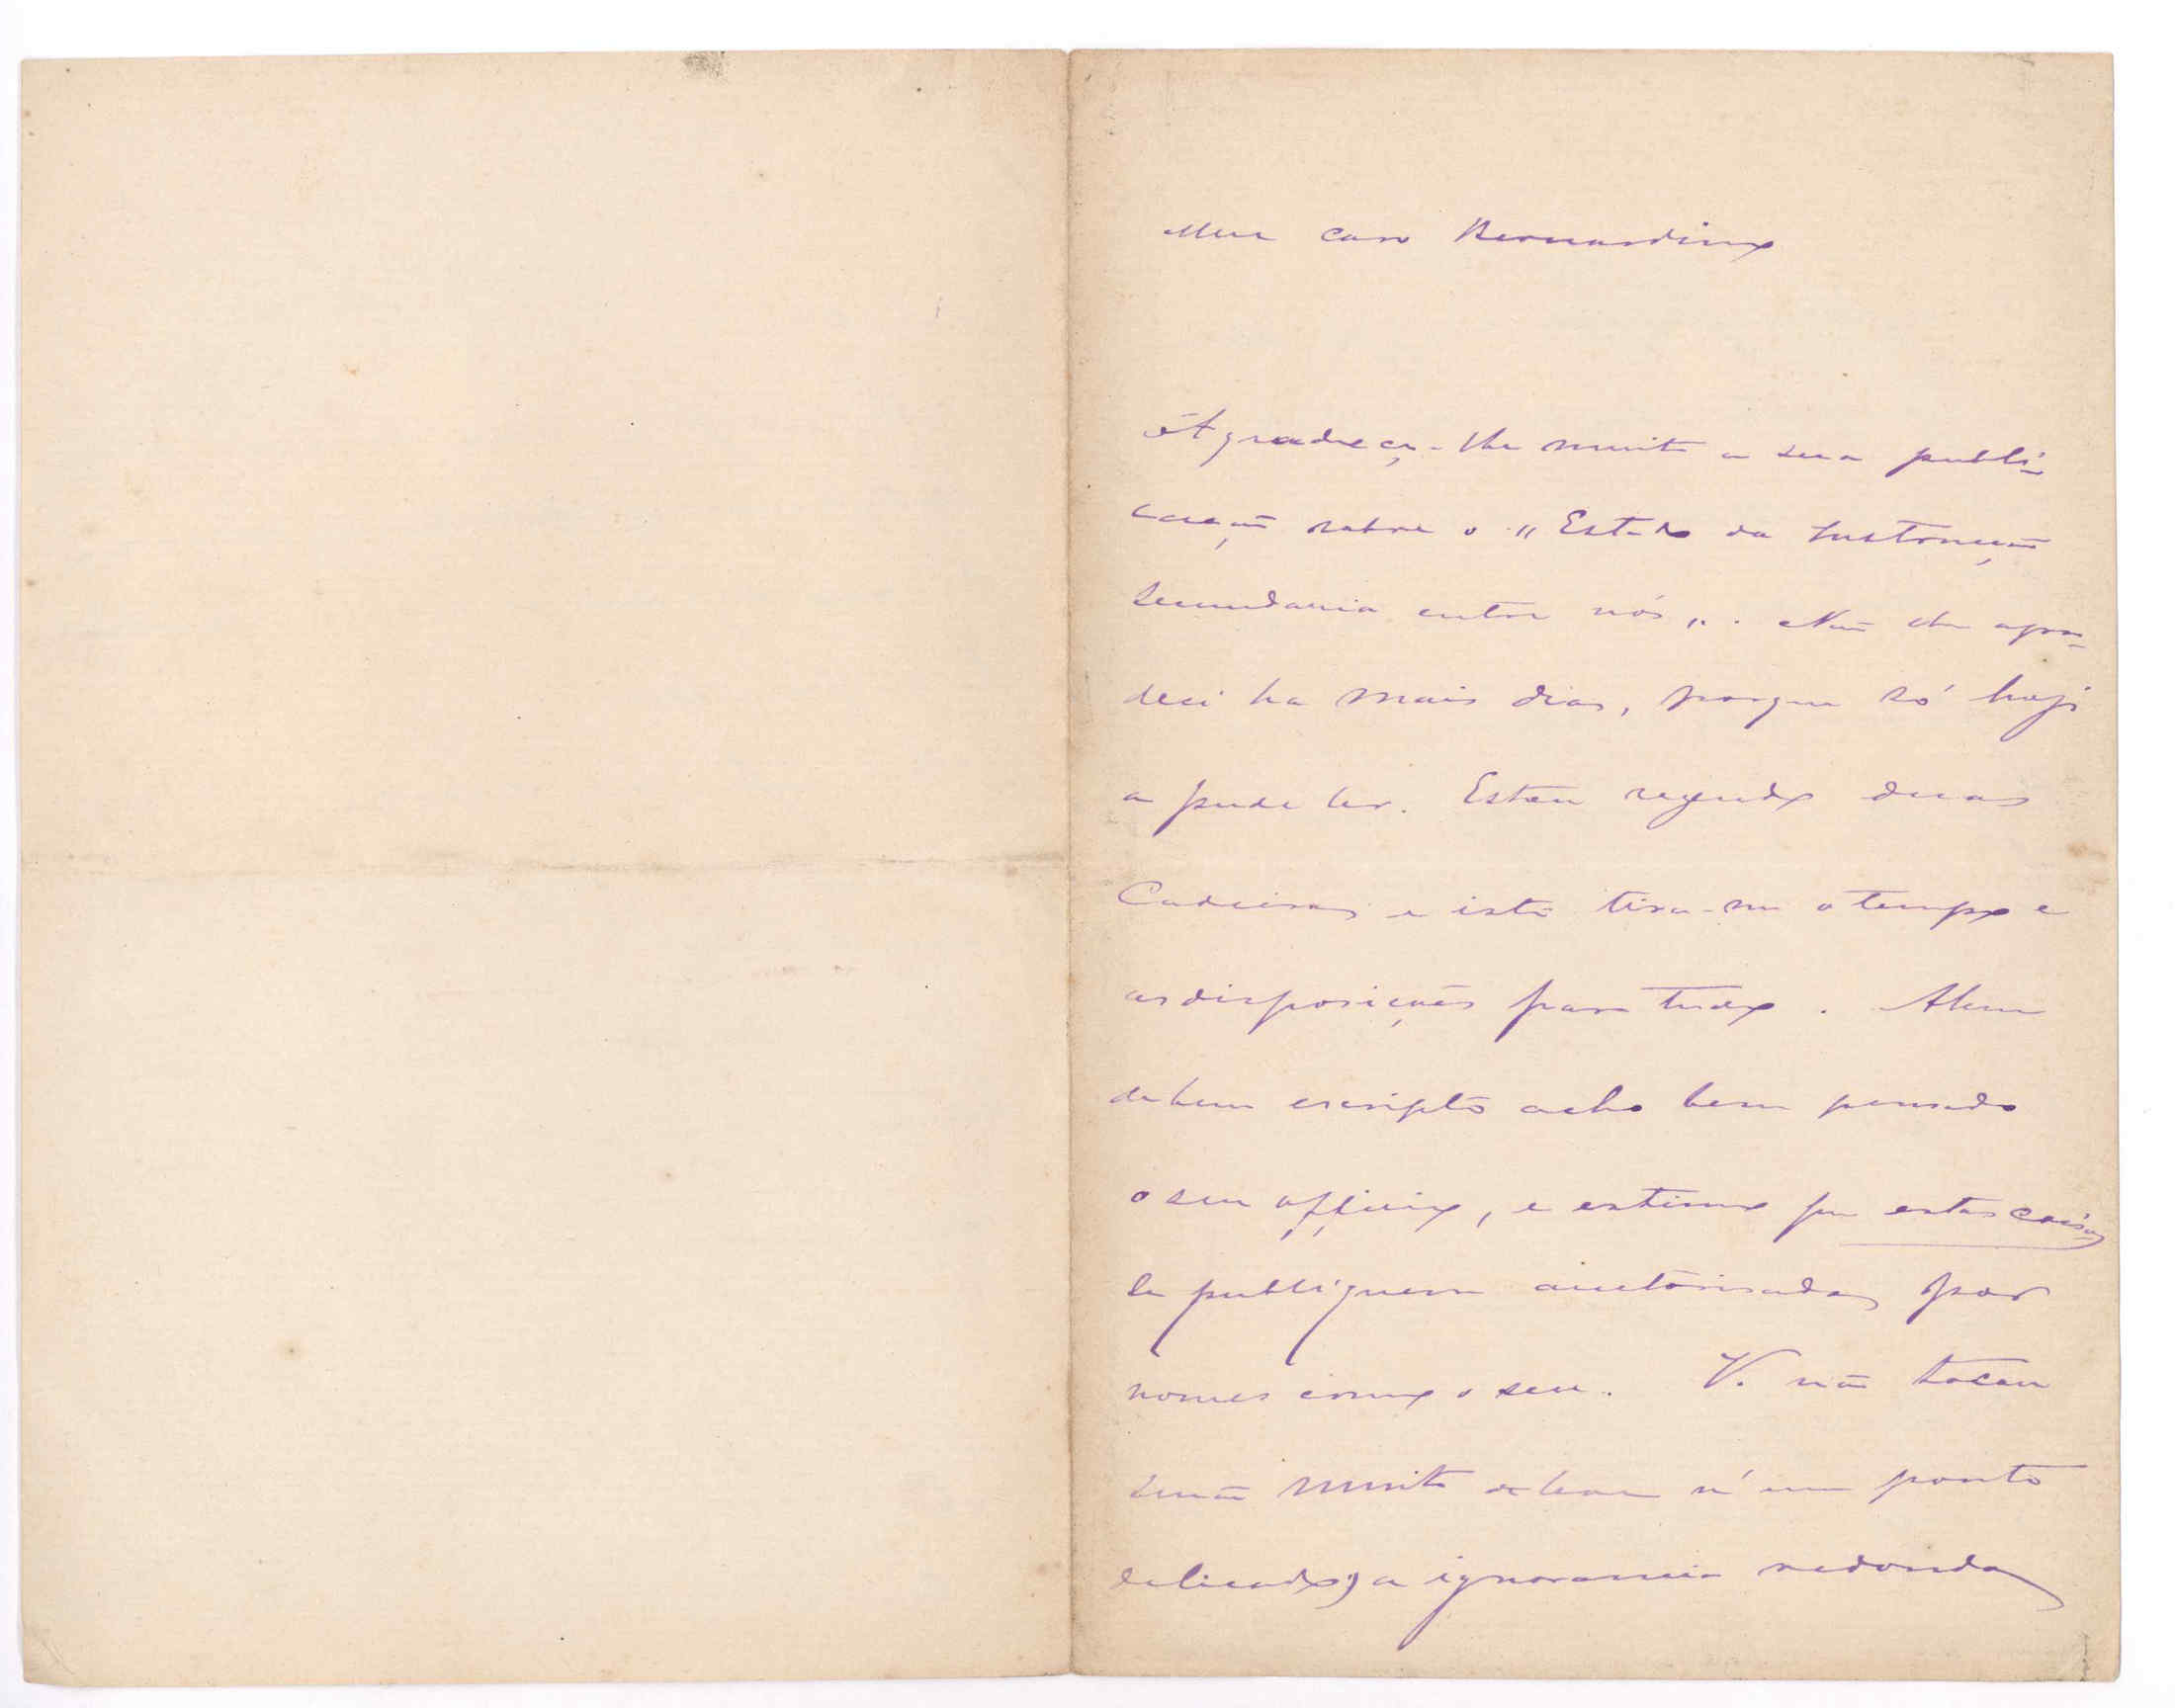 Meu caro Bernardino
Agradeço-lhe muito a sua publi-
cação sobre o "Estado da Instrucção
secundaria entre nós". Não lh'a agra-
deci ha mais dias, porque só hoje
a pude ler. Estou regendo duas
Cadeiras e isto tira-me o tempo e
as disposições para tudo. Alem
de bem escripto acho bem pensado
o seu officio, e estimo que estas coisas
se publiquem auctorisadas por
nomes como o seu. V. não tocou
senão muito de leve n'um ponto
delicado; a ignorancia redonda